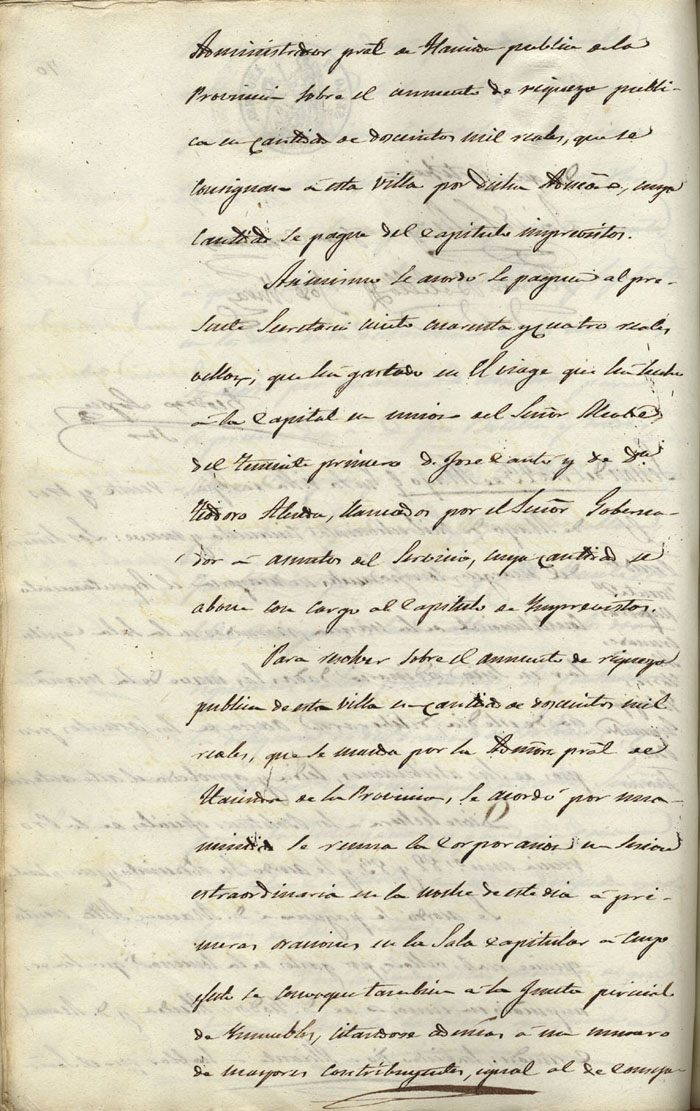 Administrador pral de Hacienda publica de la
Provincia sobre el aumento de riqueza publi-
ca en cantidad de doscientos mil reales, que se
consignan á esta villa por dicha Admón, cuya
cantidad se pague del Capitulo imprevistos.
Asimismo se acordó se paguen al pre-
sente Secretario ciento cuarenta y cuatro reales
vellon, que ha gastado en el viage que ha hecho
á la Capital en union del Señor Alcalde,
del teniente primero D. Jose Cantó y de Dn
Teodoro Alenda, llamados por el Señor Goberna-
dor á asuntos del Servicio, cuya cantidad se
abone con cargo al Capitulo de Imprevistos.
Para resolver sobre el aumento de riqueza
publica de esta villa en cantidad de doscientos mil
reales, que se manda por la Admón pral de
Hacienda de la Provincia, se acordó por una-
nimidad se reuna la Corporacion en sesion
estraordinaria en la noche de este dia á pri-
meras oraciones en la Sala Capitular á cuyo
efecto se convoque tambien á la Junta pericial
de Ynmuebles, citandose ademas á un numero
de mayores contribuyentes, igual al de Conseja-